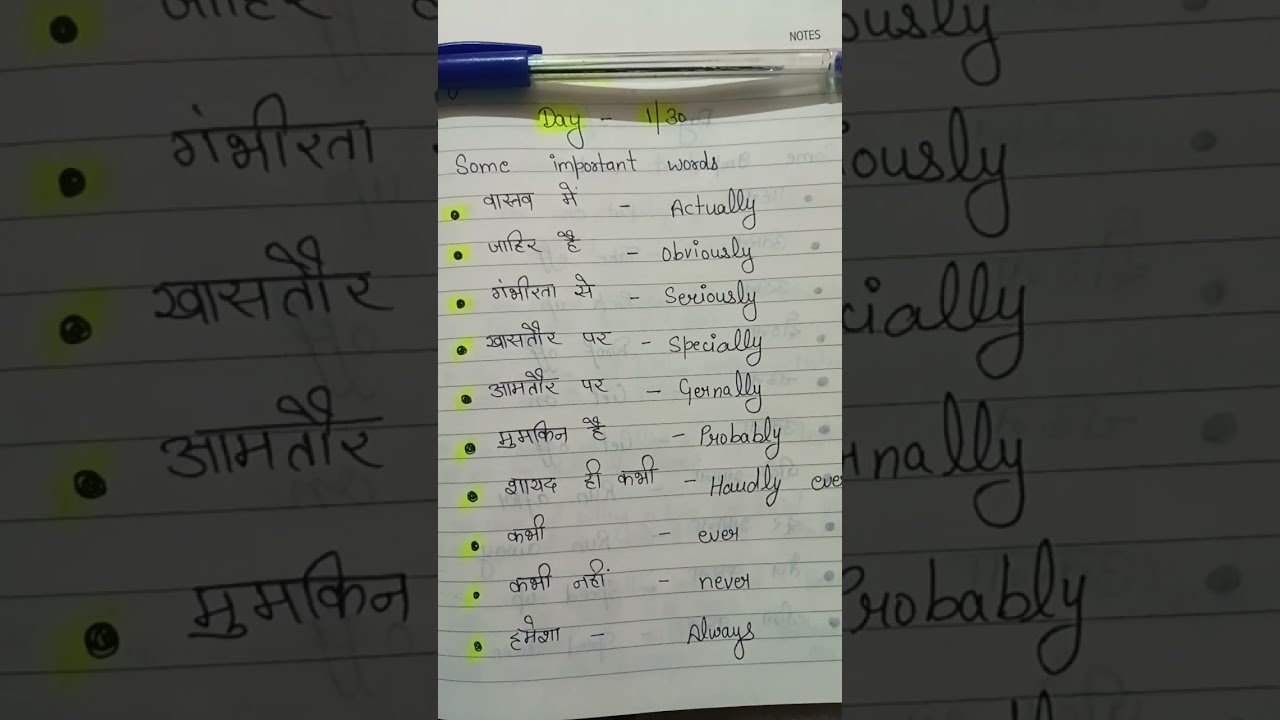 NOTES
Day - 1/30
Some important words
• वास्तव में - Actually
• जाहिर है - Obviously
• गंभीरता से - Seriously
• खासतौर पर - Specially
• आमतौर पर - Gernally
• मुमकिन है - Probably
• शायद ही कभी - Haudly ever
• कभी - ever
• कभी नहीं - never
• हमेशा - Always